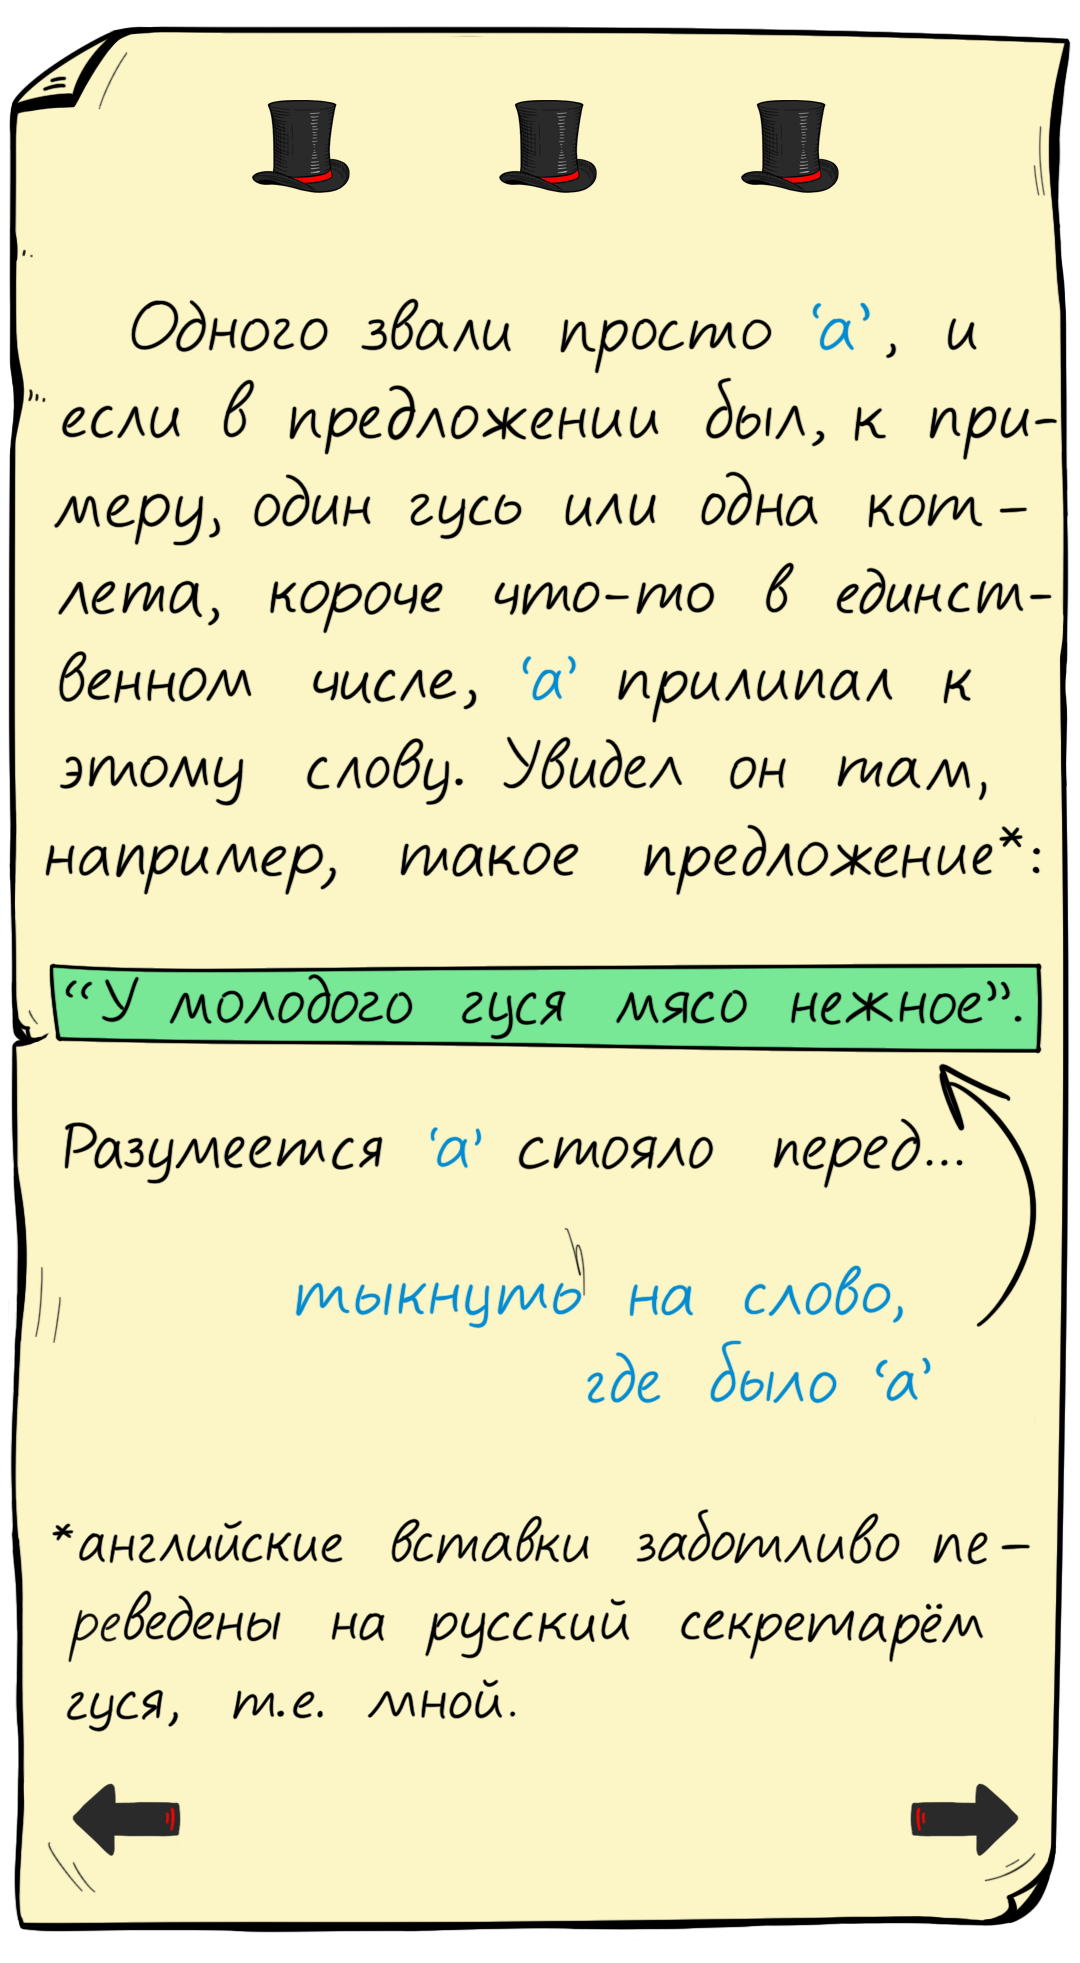 Одного звали просто ‘а’, и
если в предложении был, к при-
меру, один гусь или одна кот-
лета, короче что-то в единст-
венном числе, ‘а’ прилипал к
этому слову. Увидел он там,
например, такое предложение*:
“У молодого гуся мясо нежное”.
Разумеется ‘а’ стояло перед...
тыкнуть на слово,
где было ‘а’
*английские вставки заботливо пе-
реведены на русский секретарём
гуся, т.е. мной.